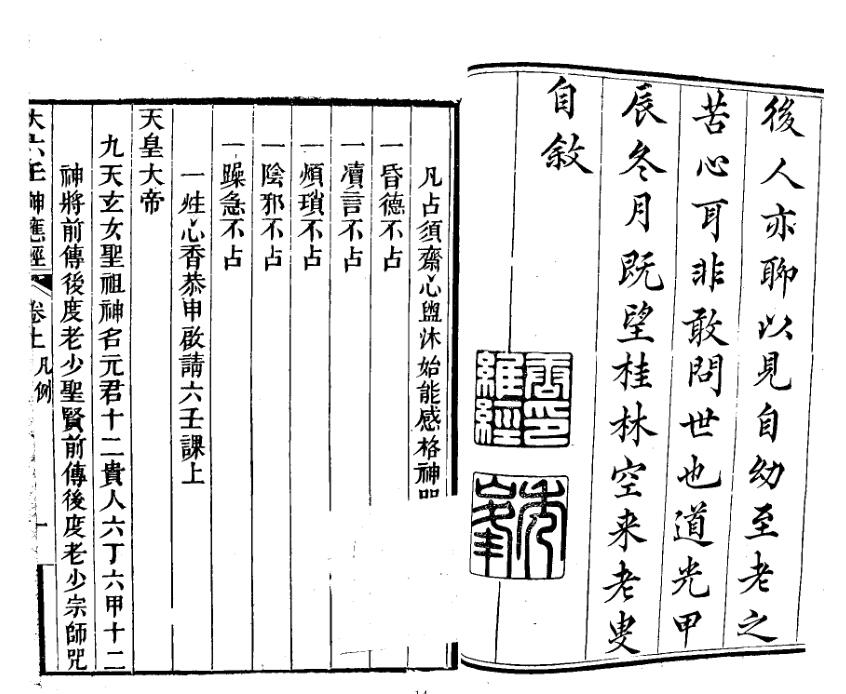 後人亦聊以見自幼至老之
苦心耳非敢問世也道光甲
辰冬月既望桂林空来老叟
自敘
維經
凡占須齋心盥沐始能感格神
一昏德不占
一凟言不占
一煩瑣不占
一陰邪不占
一躁急不占
一炷心香恭申啟請六壬課上
天皇大帝
九天玄女聖祖神名元君十二貴人六丁六甲十二
神將前傳後度老少聖賢前傳後度老少宗師咒
大六壬神應經 卷上 凡例 一
14